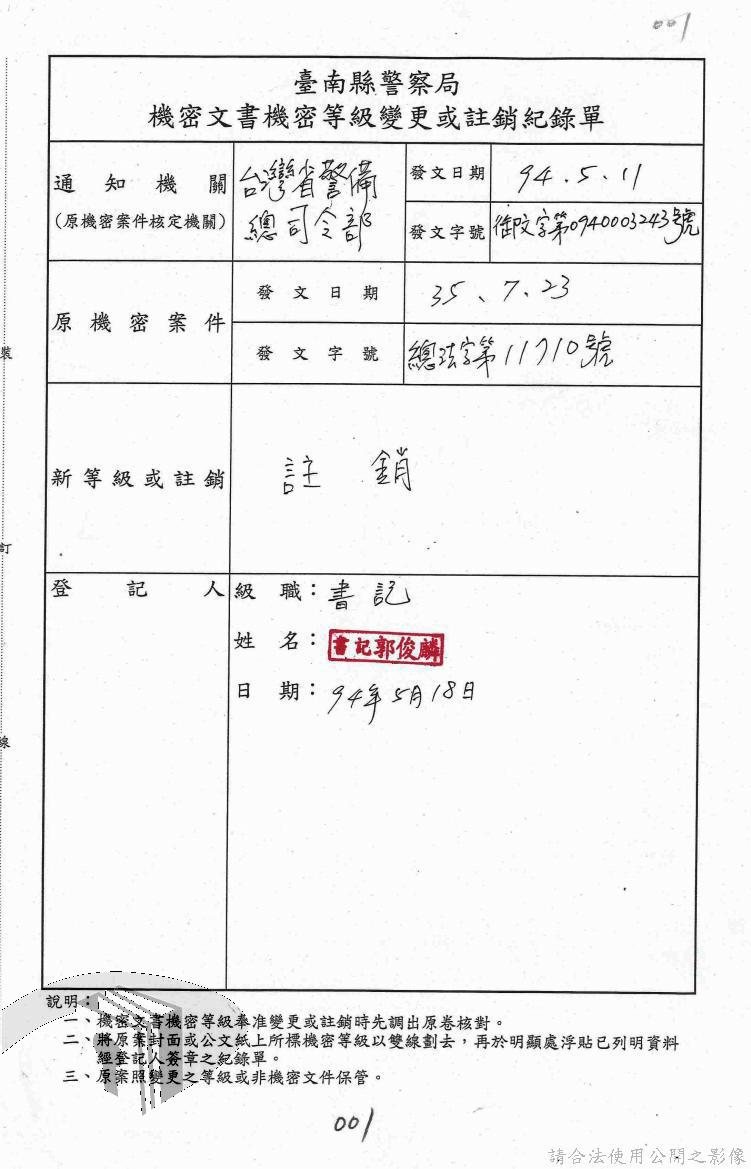 001
臺南縣警察局
機密文書機密等級變更或註銷紀錄單
通知機關
(原機密案件核定機關)
台灣省警備
總司令部
發文日期
94.5.11
發文字號
字第0940003243號
原機密案件
發文日期
35、7.23
發文字號
總法字第11710號
新等級或註銷
註銷
登記人
級職：書記
姓名：書記郭俊麟
日期：94年5月18日
說明：
一、機密文書機密等級奉准變更或註銷時先調出原卷核對。
二、將原案封面或公文紙上所標機密等級以雙線劃去，再於明顯處浮貼已列明資料
經登記人簽章之紀錄單。
三、原案照變更之等級或非機密文件保管。
裝
訂
線
001
請合法使用公開之影像